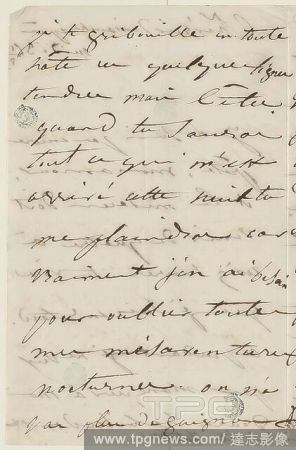 je te gribouille en toute
hâte ces quelques lignes
tendres mon
quand tu sauras
tout ce qui m'est
arrivé cette nuit tu
me plaindras car
vraiment j'en ai besoin
pour oublier toutes
mes mésaventures
nocturnes. on n'a
pas plus de guignon
TPG
www.tpgnews.com/達志影像